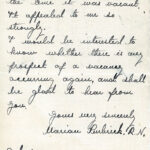 the time it was vacant,
it appealed to me so
strongly.
I would be interested to
know whether there is any
prospect of a vacancy
occurring again, and shall
be glad to hear from
you.
Yours very sincerely
Marian R.N.